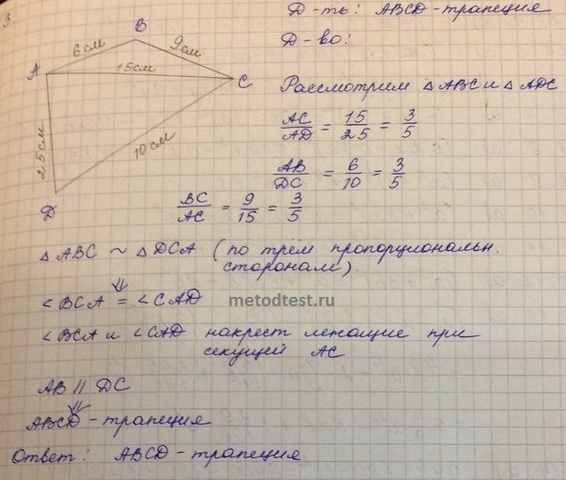 3.
Д-ть: ABCD-трапеция
Д-во:
B
6см
9см
A
15см
C
25см
10см
D
Рассмотрим △ABC и △ADC
AC/AD = 15/25 = 3/5
AB/DC = 6/10 = 3/5
BC/AC = 9/15 = 3/5
△ABC ~ △DCA (по трем пропорциональн.
сторонам)
⇓
∠BCA = ∠CAD
metodtest.ru
∠BCA и ∠CAD накрест лежащие при
секущей AC
AB || DC
⇓
ABCD-трапеция
Ответ: ABCD-трапеция